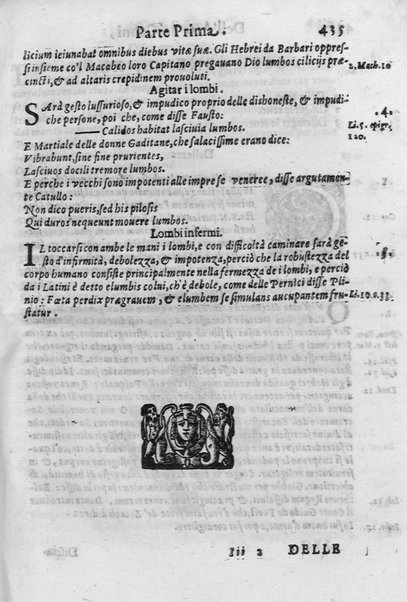 Parte Prima. 435
licium ieiunabat omnibus diebus vitæ suæ. Gli Hebrei da Barbari oppres-
si insieme co'l Macabeo loro Capitano pregauano Dio lumbos cilicijs præ- 2. Mach. 10
cincti, & ad altaris crepidinem prouoluti.
Agitar i lombi.
SArà gesto lussurioso, & impudico proprio delle disboneste, & impudi- .4.
che persone, poi che, come disse Fausto: Li. 5. epigr.
Calidos habitat lasciuia lumbos. 120.
E Martiale delle donne Gaditane, che salacissime erano dice:
Vibrabunt, sine fine prurientes,
Lasciuos docili tremore lumbos.
E perche i vecchi sono impotenti alle imprese veneree, disse argutamen-
te Catullo:
Non dico pueris, sed his pilosis
Qui duros nequeunt mouere lumbos.
Lombi infermi.
IL toccarsi con ambe le mani i lombi, e con difficoltà caminare sarà ge-
sto d'infirmità, debolezza, & impotenza, perciò che la robustezza del
corpo humano consiste principalmente nella fermezza de i lombi, e perciò
da i Latini è detto elumbis colui, ch'è debole, come delle Pernici disse Pli-
nio: Fæta perdix prægrauem, & elumbem se simulans aucupantem fru- Li. 10. c. 33.
statur.
Iii 2 DELLE